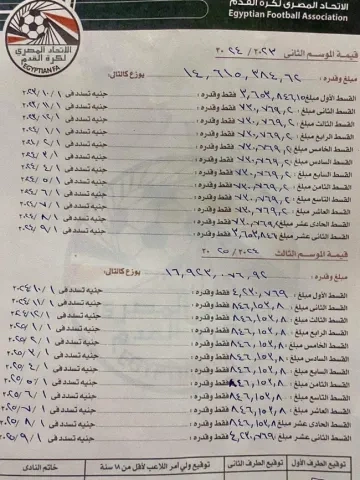 الاتحاد المصرى لكرة القدم
Egyptian Football Association
الاتحاد المصرى
لكرة القدم
EGYPTIAN FA
قيمة الموسم الثانى ٢٠٢٣ / ٢٠٢٤
مبلغ وقدره : ١٤,٦١٥,٣٨٤,٦٢ يوزع كالتالى.
القسط الأول مبلغ ٣,٦٥٣,٨٤٦,١٥ فقط وقدره : جنيه تسدد فى ١ / ١٠ /
القسط الثانى مبلغ : ٧٣٠,٧٦٩,٢ فقط وقدره : جنيه تسدد فى ١ / ١١ /
القسط الثالث مبلغ : ٧٣٠,٧٦٩,٢ فقط وقدره : جنيه تسدد فى ١ / ١٢ /
القسط الرابع مبلغ : ٧٣٠,٧٦٩,٢ فقط وقدره : جنيه تسدد فى ١ / ١ /
القسط الخامس مبلغ : ٧٣٠,٧٦٩,٢ فقط وقدره : جنيه تسدد فى ١ / ٢ /
القسط السادس مبلغ : ٧٣٠,٧٦٩,٢ فقط وقدره : جنيه تسدد فى ١ / ٣ /
القسط السابع مبلغ : ٧٣٠,٧٦٩,٢ فقط وقدره : جنيه تسدد فى ١ / ٤ /
القسط الثامن مبلغ : ٧٣٠,٧٦٩,٢ فقط وقدره : جنيه تسدد فى ١ / ٥ /
القسط التاسع مبلغ : ٧٣٠,٧٦٩,٢ فقط وقدره : جنيه تسدد فى ١ / ٦ /
القسط العاشر مبلغ : ٧٣٠,٧٦٩,٢ فقط وقدره : جنيه تسدد فى ١ / ٧ /
القسط الحادى عشر مبلغ : ٧٣٠,٧٦٩,٢ فقط وقدره : جنيه تسدد فى ١ / ٨ /
القسط الثانى عشر مبلغ : ٣,٦٥٣,٨٤٦ فقط وقدره : جنيه تسدد فى ١ / ٩ /
قيمة الموسم الثالث ٢٠٢٤ / ٢٠٢٥
مبلغ وقدره : ١٦,٩٢٣,٠٧٦,٩٢ يوزع كالتالى.
القسط الأول مبلغ : ٤,٢٣٠,٧٦٩ فقط وقدره : جنيه تسدد فى ١ / ١٠ /
القسط الثانى مبلغ : ٨٤٦,١٥٣,٨ فقط وقدره : جنيه تسدد فى ١ / ١١ /
القسط الثالث مبلغ : ٨٤٦,١٥٣,٨ فقط وقدره : جنيه تسدد فى ١ / ١٢ /
القسط الرابع مبلغ : ٨٤٦,١٥٣,٨ فقط وقدره : جنيه تسدد فى ١ / ١ /
القسط الخامس مبلغ : ٨٤٦,١٥٣,٨ فقط وقدره : جنيه تسدد فى ١ / ٢ /
القسط السادس مبلغ : ٨٤٦,١٥٣,٨ فقط وقدره : جنيه تسدد فى ١ / ٣ /
القسط السابع مبلغ : ٨٤٦,١٥٣,٨ فقط وقدره : جنيه تسدد فى ١ / ٤ /
القسط الثامن مبلغ : ٨٤٦,١٥٣,٨ فقط وقدره : جنيه تسدد فى ١ / ٥ / ٢٠٢٥
القسط التاسع مبلغ : ٨٤٦,١٥٣,٨ فقط وقدره : جنيه تسدد فى ١ / ٦ / ٢٠٢٥
القسط العاشر مبلغ : ٨٤٦,١٥٣,٨ فقط وقدره : جنيه تسدد فى ١ / ٧ / ٢٠٢٥
القسط الحادى عشر مبلغ : ٨٤٦,١٥٣,٨ فقط وقدره : جنيه تسدد فى ١ / ٨ / ٢٠٢٥
القسط الثانى عشر مبلغ : ٤,٢٣٠,٧٦٩ فقط وقدره : جنيه تسدد فى ١ / ٩ / ٢٠٢٥
توقيع الطرف الأول توقيع الطرف الثانى توقيع ولي أمر اللاعب لأقل من ١٨ سنة خاتم النادى